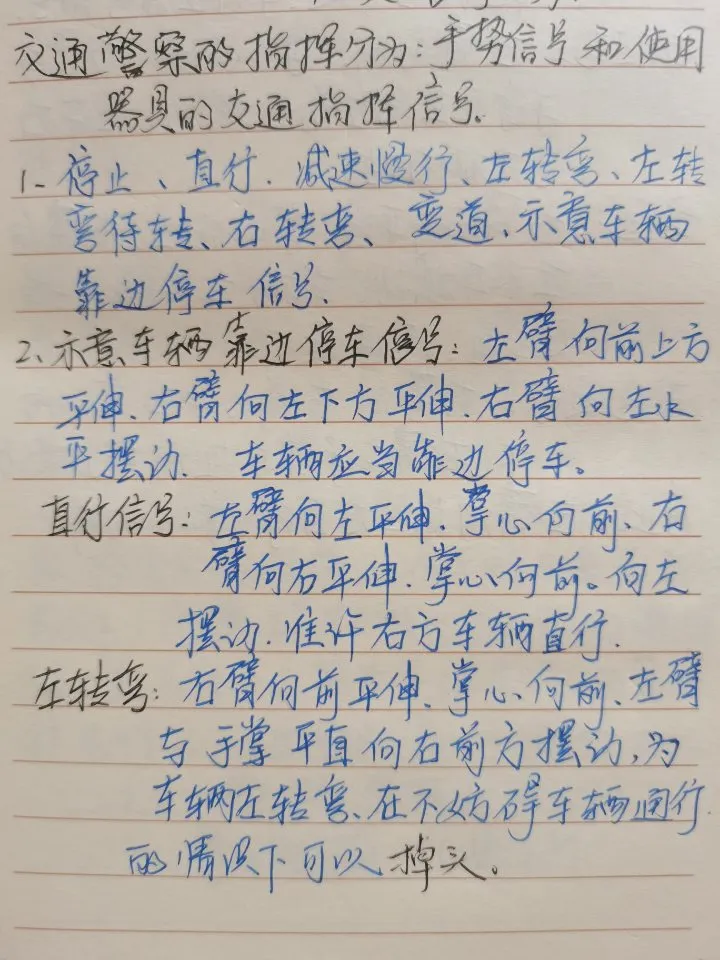 交通警察的指挥分为：手势信号和使用
器具的交通指挥信号。
1、停止、直行、减速慢行、左转弯、左转
弯待转、右转弯、变道、示意车辆
靠边停车信号.
2、示意车辆靠边停车信号：左臂向前上方
平伸、右臂向左下方平伸、右臂向左水
平摆边、车辆应当靠边停车。
直行信号：左臂向左平伸、掌心向前、右
臂向右平伸、掌心向前。向左
摆边、准许右方车辆直行.
左转弯：右臂向前平伸、掌心向前、左臂
与手掌平直向右前方摆边，为
车辆左转弯、在不妨碍车辆通行
的情况下可以掉头。